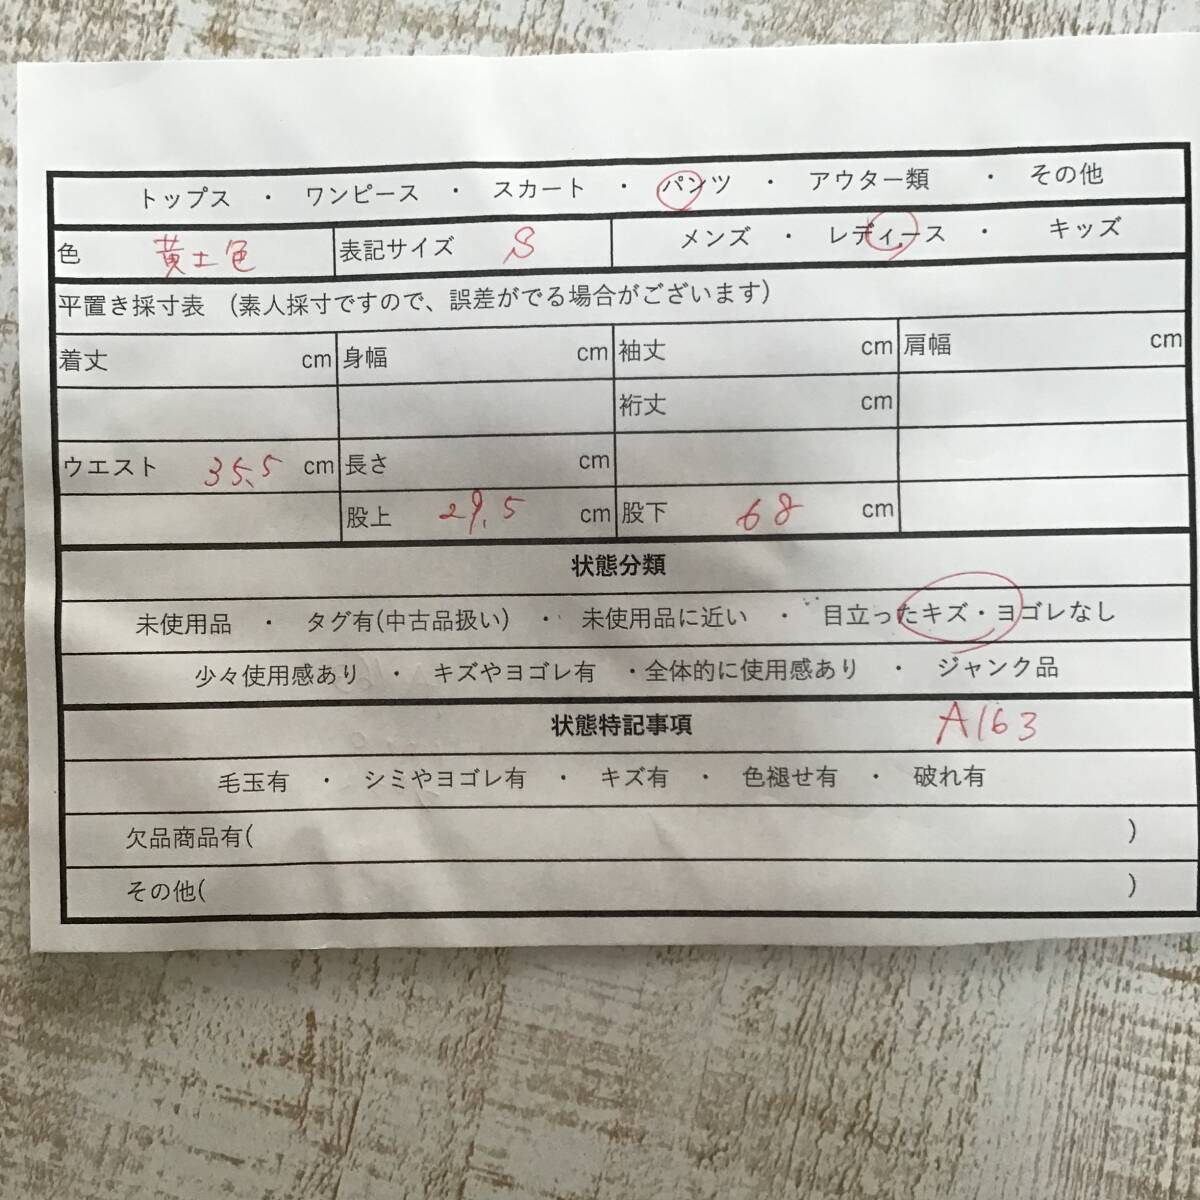 トップス ・ ワンピース ・ スカート ・ パンツ ・ アウター類 ・ その他
色 黄土色 表記サイズ S メンズ ・ レディース ・ キッズ
平置き採寸表 （素人採寸ですので、誤差がでる場合がございます）
着丈 cm 身幅 cm 袖丈 cm 肩幅 cm
裄丈 cm
ウエスト 35.5 cm 長さ cm
股上 29.5 cm 股下 68 cm
状態分類
未使用品 ・ タグ有(中古品扱い) ・ 未使用品に近い ・ 目立ったキズ・ヨゴレなし
少々使用感あり ・ キズやヨゴレ有 ・全体的に使用感あり ・ ジャンク品
状態特記事項 A163
毛玉有 ・ シミやヨゴレ有 ・ キズ有 ・ 色褪せ有 ・ 破れ有
欠品商品有( )
その他( )